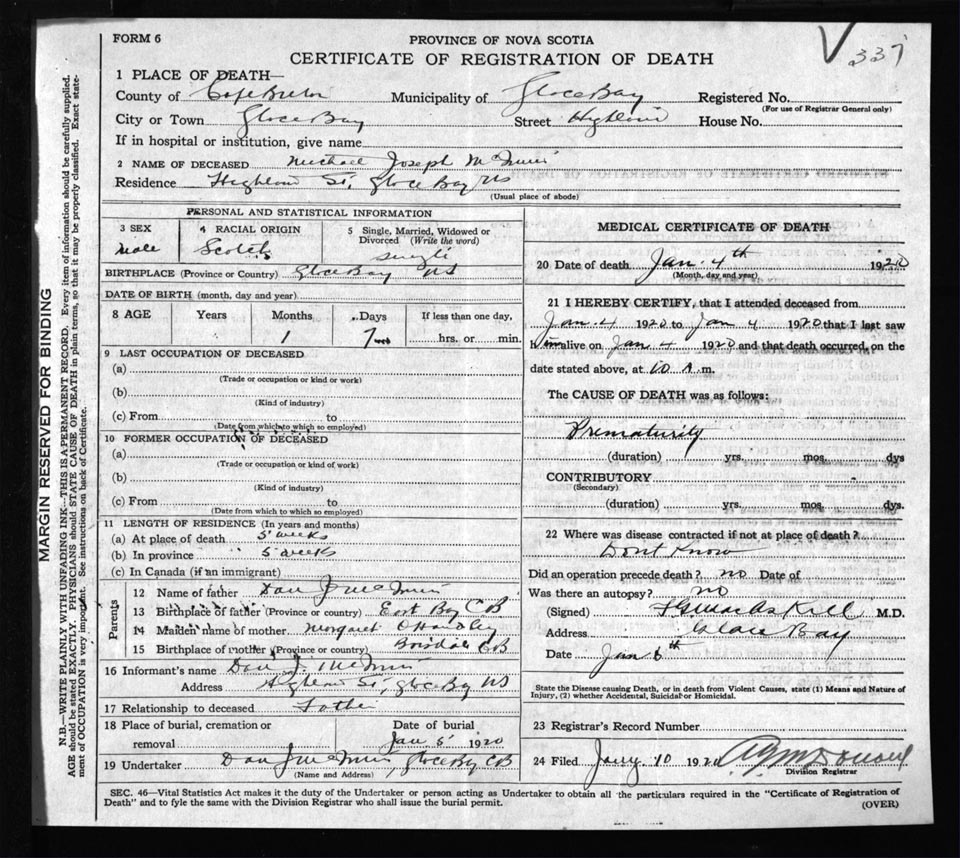 FORM 6
PROVINCE OF NOVA SCOTIA
CERTIFICATE OF REGISTRATION OF DEATH
V 337
1 PLACE OF DEATH—
County of Cape Breton Municipality of Glace Bay Registered No.
(For use of Registrar General only)
City or Town Glace Bay Street Highland House No.
If in hospital or institution, give name
2 NAME OF DECEASED Michael Joseph McInnis
Residence Highland St, Glace Bay NS
(Usual place of abode)
PERSONAL AND STATISTICAL INFORMATION
3 SEX
Male
4 RACIAL ORIGIN
Scotch
5 Single, Married, Widowed or Divorced (Write the word)
Single
BIRTHPLACE (Province or Country) Glace Bay NS
DATE OF BIRTH (month, day and year)
8 AGE Years Months Days If less than one day,
1 7 hrs. or min.
9 LAST OCCUPATION OF DECEASED
(a)
(Trade or occupation or kind or work)
(b)
(Kind of industry)
(c) From to
(Date from which to which so employed)
10 FORMER OCCUPATION OF DECEASED
(a)
(Trade or occupation or kind of work)
(b)
(Kind of industry)
(c) From to
(Date from which to which so employed)
11 LENGTH OF RESIDENCE (In years and months)
(a) At place of death 5 weeks
(b) In province 5 weeks
(c) In Canada (if an immigrant)
Parents
12 Name of father Dan J McInnis
13 Birthplace of father (Province or country) East Bay C B
14 Maiden name of mother Margaret O Handley
15 Birthplace of mother (Province or country) Boisdale C B
16 Informant's name Dan J. McInnis
Address Highland St, Glace Bay NS
17 Relationship to deceased Father
18 Place of burial, cremation or removal
Date of burial
Jan 5 1920
19 Undertaker Dan J McInnis, Glace Bay C B
(Name and Address)
MEDICAL CERTIFICATE OF DEATH
20 Date of death Jan. 4th 1920
(Month, day and year)
21 I HEREBY CERTIFY, that I attended deceased from
Jan. 4 1920 to Jan 4 1920 that I last saw
him alive on Jan 4 1920 and that death occurred, on the
date stated above, at 10 A. m.
The CAUSE OF DEATH was as follows:
Prematurity
(duration) yrs. mos. dys
CONTRIBUTORY
(Secondary)
(duration) yrs. mos. dys.
22 Where was disease contracted if not at place of death?
Dont Know
Did an operation precede death? no Date of
Was there an autopsy? no
(Signed) M.D.
Address Glace Bay
Date Jan 6th
State the Disease causing Death, or in death from Violent Causes, state (1) Means and Nature of
Injury, (2) whether Accidental, Suicidal or Homicidal.
23 Registrar's Record Number
24 Filed Jany 10 1920
Division Registrar
SEC. 46—Vital Statistics Act makes it the duty of the Undertaker or person acting as Undertaker to obtain all the particulars required in the "Certificate of Registration of
Death" and to fyle the same with the Division Registrar who shall issue the burial permit.
(OVER)
MARGIN RESERVED FOR BINDING
N.B.—WRITE PLAINLY WITH UNFADING INK—THIS IS A PERMANENT RECORD. Every item of information should be carefully supplied.
AGE should be stated EXACTLY. PHYSICIANS should STATE CAUSE OF DEATH in plain terms, so that it may be properly classified. Exact state-
ment of OCCUPATION is very important. See instructions on back of Certificate.